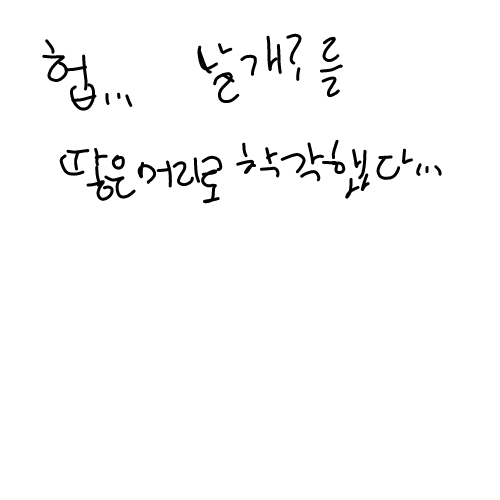 헙... 날개?를
땋은머리로 착각햇다...